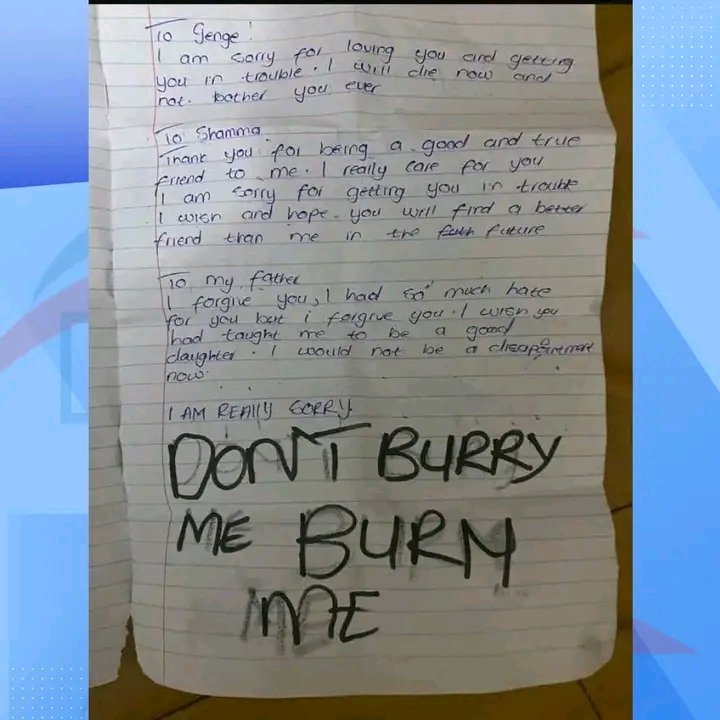 To Genge!
I am sorry for loving you and getting
you in trouble. I will die now and
not bother you ever
To Shamma
Thank you for being a good and true
friend to me. I really care for you
I am sorry for getting you in trouble
I wish and hope you will find a better
friend than me in the future
To my father
I forgive you, I had so much hate
for you but i forgive you. I wish you
had taught me to be a good
daughter. I would not be a disappointment
now.
I AM REALLY SORRY
DON'T BURRY
ME BURN
ME